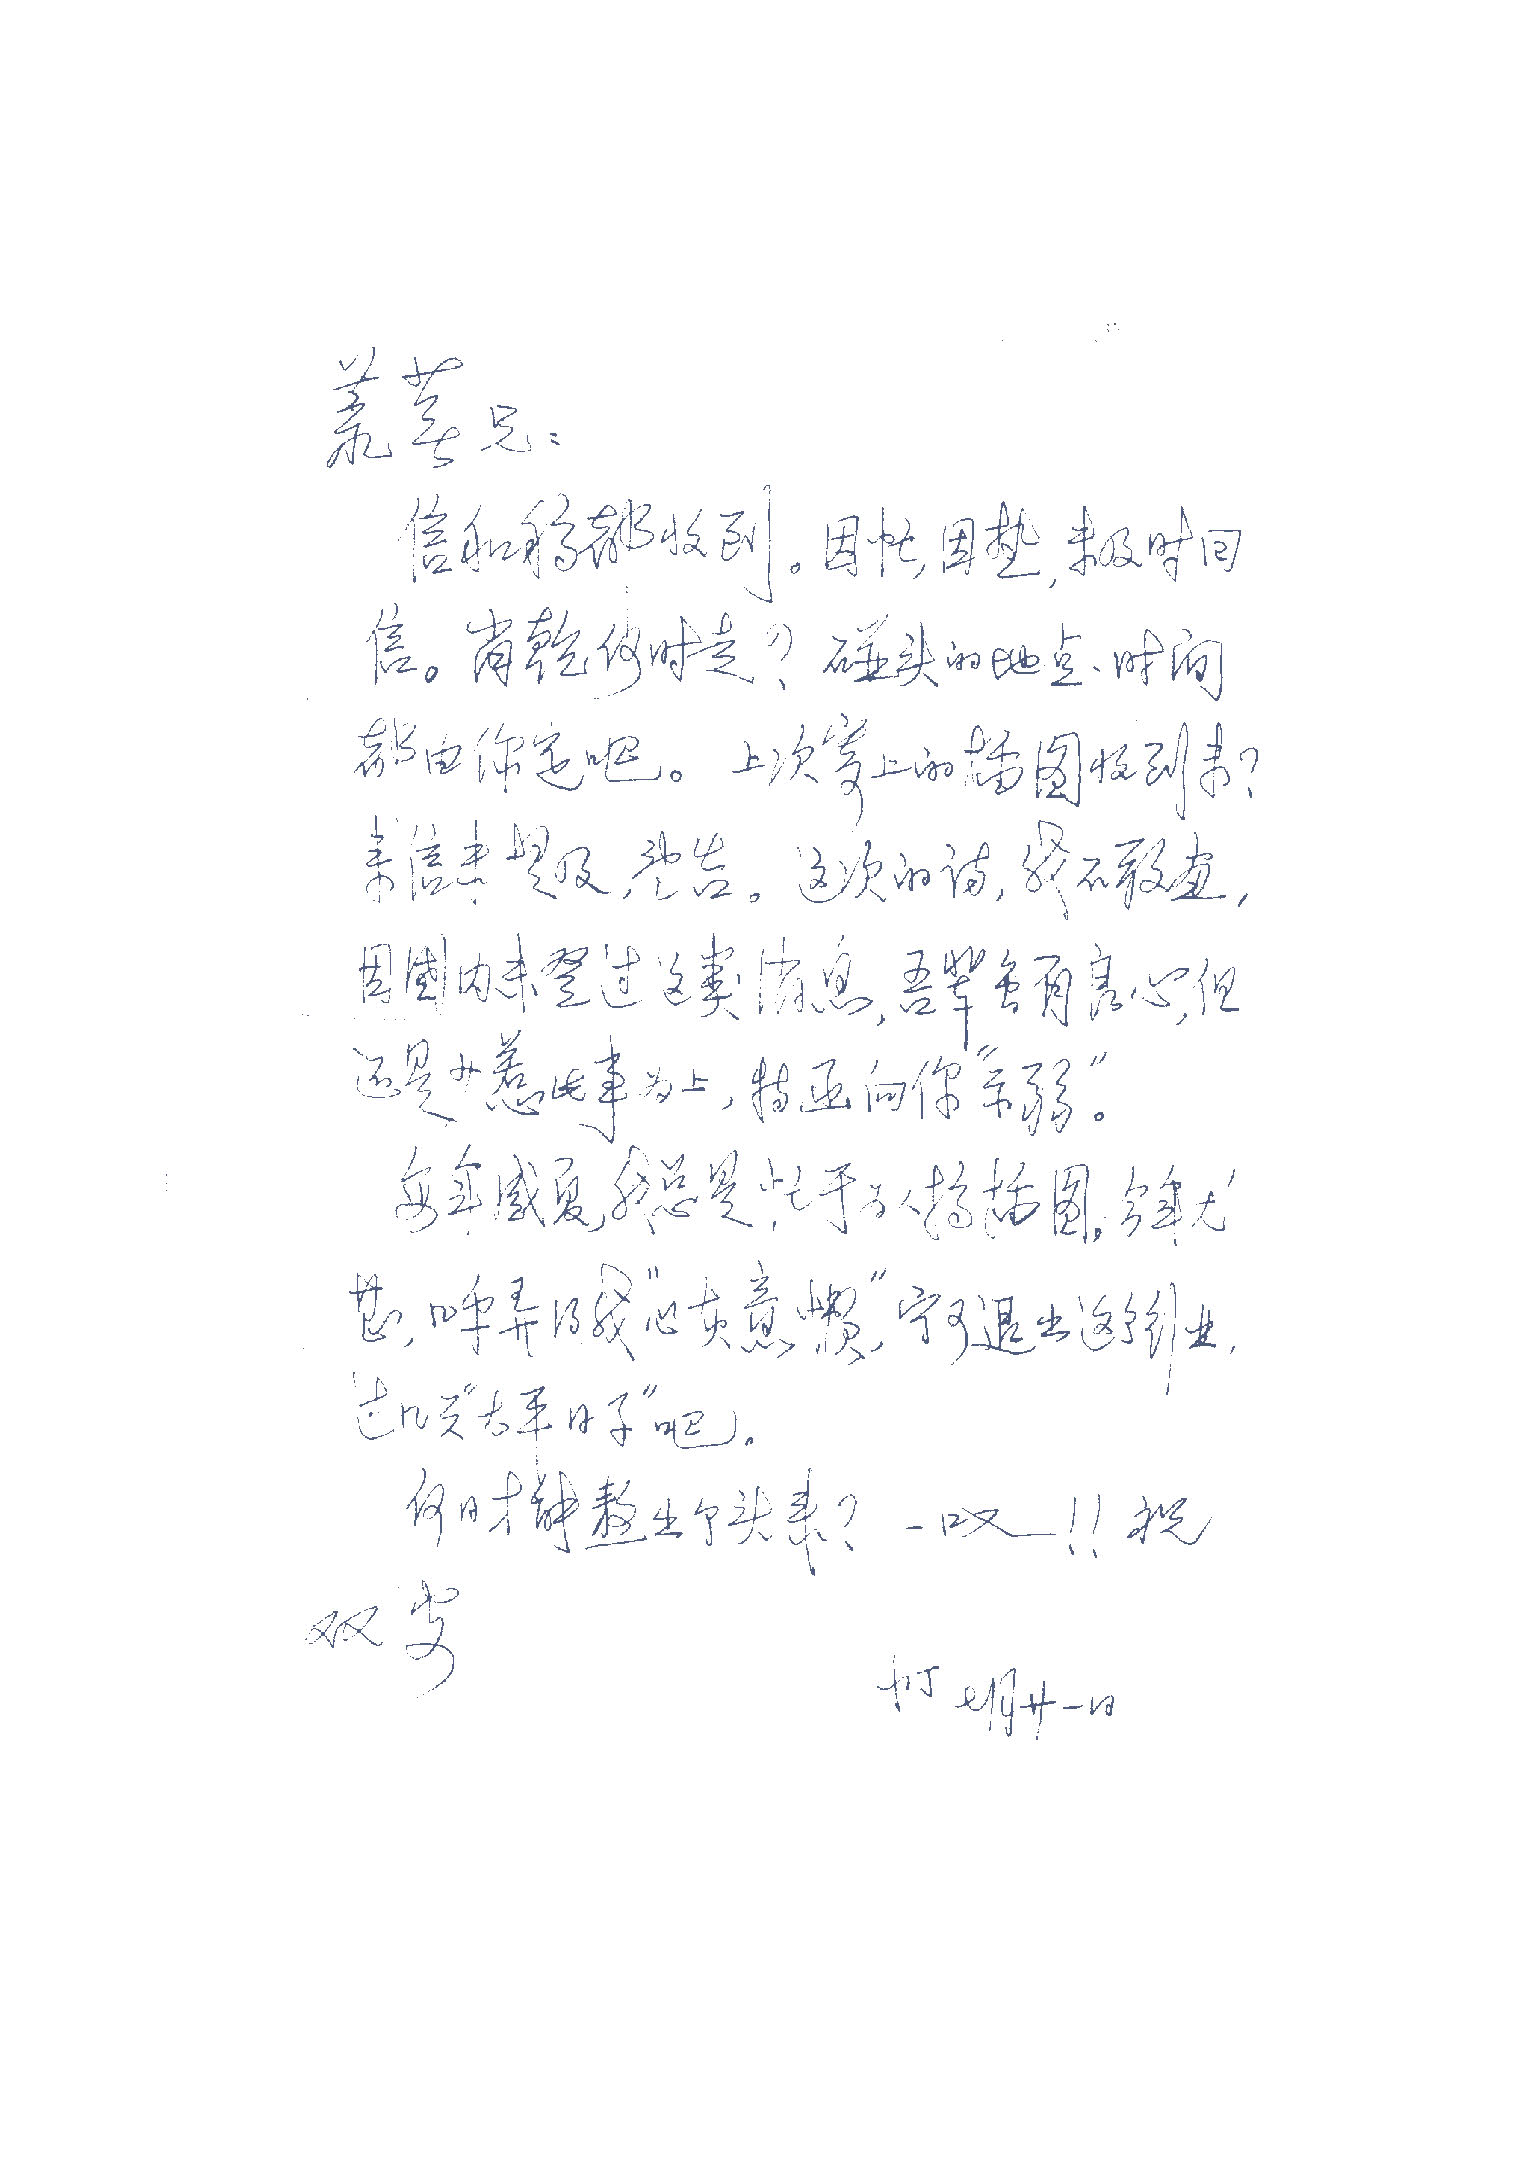 荒芜兄：
信和稿都收到。因忙，因热，未及时回
信。肖乾何时走？碰头的地点、时间
都由你定吧。上次寄上的插图收到未？
来信未提及，望告。这次的诗，我不敢画，
因国内未登过这类消息，吾辈虽有良心，但
还是少惹此事为上，特函向你“示弱”。
每年盛夏，我总是忙于为人搞插图。今年尤
甚，时弄得我“心灰意懒”，宁可退出这个行业，
过几天“太平日子”吧。
何日才能熬出个头来？一叹！！祝
双安
丁 七月廿一日